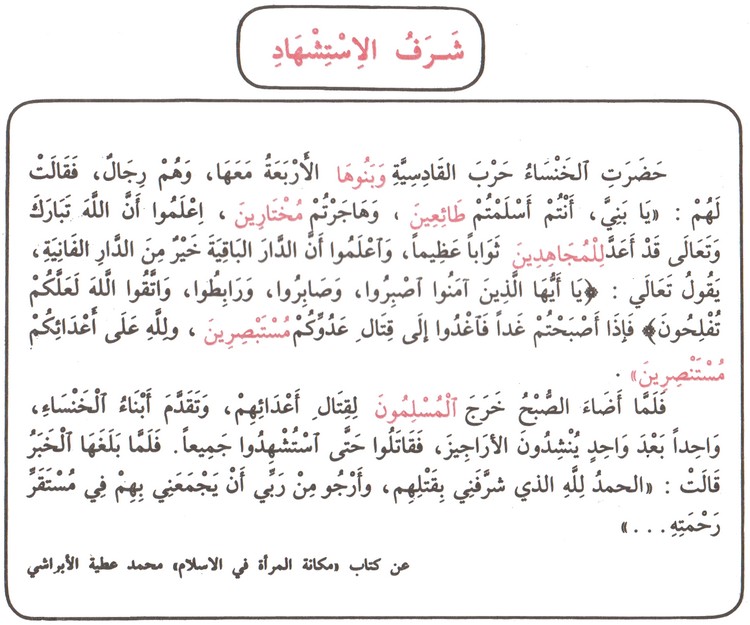 شَرَفُ الِاسْتِشْهَادِ
حَضَرَتِ ٱلخَنْسَاءُ حَرْبَ القَادِسِيَّةِ وَبَنُوهَا الأَرْبَعَةُ مَعَهَا، وَهُمْ رِجَالٌ، فَقَالَتْ
لَهُمْ : «يَا بَنِيَّ، أَنْتُمْ أَسْلَمْتُمْ طَائِعِينَ ، وَهَاجَرْتُمْ مُخْتَارِينَ ، اِعْلَمُوا أَنَّ اللَّهَ تَبَارَكَ
وَتَعَالَى قَدْ أَعَدَّ لِلْمُجَاهِدِينَ ثَوَاباً عَظِيماً، وَٱعْلَمُوا أَنَّ الدَّارَ البَاقِيَةَ خَيْرٌ مِنَ الدَّارِ الفَانِيَةِ،
يَقُولُ تَعَالَي : ﴿يَا أَيُّهَا الَّذِينَ آمَنُوا ٱصْبِرُوا، وَصَابِرُوا، وَرَابِطُوا، وَاتَّقُوا اللَّهَ لَعَلَّكُمْ
تُفْلِحُونَ﴾ فَإِذَا أَصْبَحْتُمْ غَداً فَٱغْدُوا إِلَى قِتَالِ عَدُوِّكُمْ مُسْتَبْصِرِينَ ، ولِلَّهِ عَلَى أَعْدَائِكُمْ
مُسْتَنْصِرِينَ» .
فَلَمَّا أَضَاءَ الصُّبْحُ خَرَجَ ٱلْمُسْلِمُونَ لِقِتَالِ أَعْدَائِهِمْ، وَتَقَدَّمَ أَبْنَاءُ ٱلْخَنْسَاءِ،
وَاحِداً بَعْدَ وَاحِدٍ يُنْشِدُونَ الأَرَاجِيزَ، فَقَاتَلُوا حَتَّى ٱسْتُشْهِدُوا جَمِيعاً. فَلَمَّا بَلَغَهَا ٱلْخَبَرُ
قَالَتْ : «الحمدُ لِلَّهِ الذي شرَّفَنِي بِقَتْلِهِم، وَأَرْجُو مِنْ رَبِّي أَنْ يَجْمَعَنِي بِهِمْ فِي مُسْتَقَرِّ
رَحْمَتِهِ...»
عن كتاب «مكانة المرأة في الاسلام» محمد عطية الأبراشي